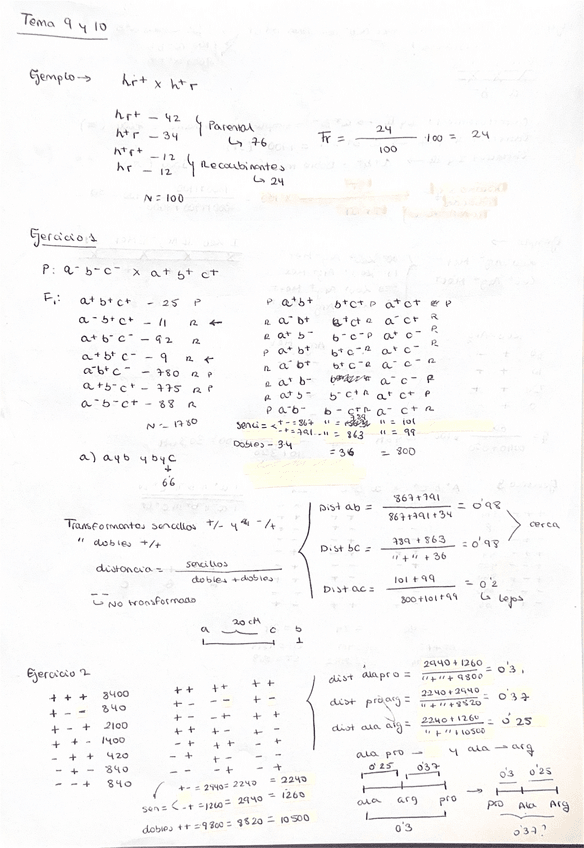 Tema 9 y 10
Ejemplo → hr+ x h+r
hr+ - 42
h+r - 34
Parental
↳ 76
h+r+ - 12
hr - 12
Recombinantes
↳ 24
N = 100
Fr = 24/100 · 100 = 24
Ejercicio 1
P: a- b- c- x a+ b+ c+
F1: a+ b+ c+ - 25 P
a- b+ c+ - 11 R ←
a+ b- c- - 92 R
a+ b+ c- - 9 R ←
a- b+ c- - 780 R P
a+ b- c+ - 775 R P
a- b- c+ - 88 R
N = 1780
P a+ b+ b+ c+ P a+ c+ P
R a- b+ b+ c+ R a- c+ R
R a+ b- b- c- P a+ c- R
P a+ b+ b+ c- R a+ c- R
R a- b+ b+ c- R a- c- R
R a+ b- a- c- R
R a+ b- b- c+ R a+ c+ P
P a- b- b- c+ R a- c+ R
senci = < +- = 867 " = 789 " = 101
-+ = 791 " = 863 " = 99
Dobles - 34 = 36 = 800
a) a y b y b y c
↓
6'6
Transformantes sencillos +/- y -/+
" dobles +/+
distancia = sencillos / dobles + dobles
-- No transformado
Dist ab = 867+791 / 867+791+34 = 0'98
Dist bc = 789 + 863 / "+" + 36 = 0'98
cerca
Dist ac = 101 + 99 / 800+101+99 = 0'2
↳ lejos
20 cM
a c b
Ejercicio 2
+ + + 8400
+ - - 840
+ - + 2100
+ + - 1400
- + + 420
- + - 840
- - + 840
++ ++ ++
+- -- +-
+- -+ ++
++ +- +-
-+ ++ -+
-+ +- --
-- -+ -+
sen = < +- = 2940 = 2240 = 2240
-+ = 1260 = 2940 = 1260
dobles ++ = 9800 = 8820 = 10500
dist ala pro = 2940 + 1260 / "+"+ 9800 = 0'3
dist pro arg = 2240 + 2940 / "+"+ 8820 = 0'37
dist ala arg = 2240 + 1260 / "+"+ 10500 = 0'25
ala pro → y ala → arg
0'25 0'37
ala arg pro
0'3
→
0'3 0'25
Pro Ala Arg
0'37?